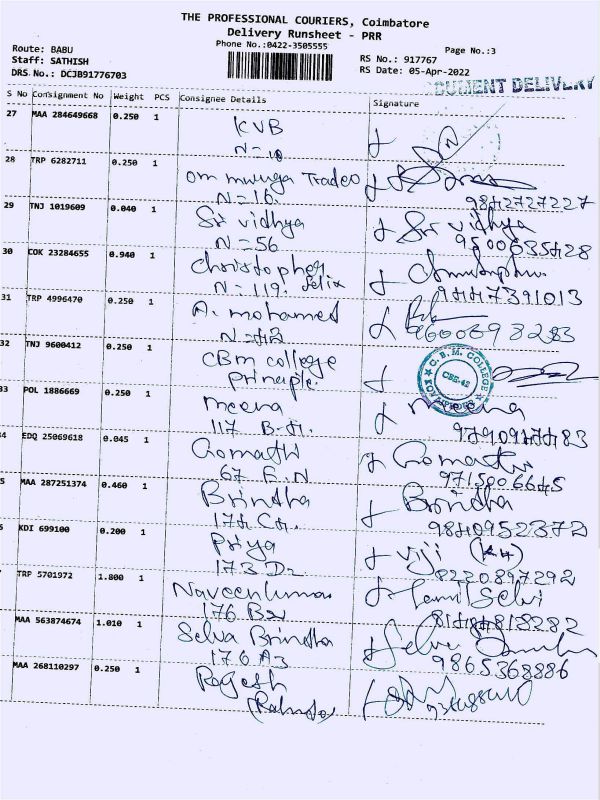 THE PROFESSIONAL COURIERS, Coimbatore
Delivery Runsheet - PRR
Phone No.:0422-3505555
Page No.:3
Route: BABU
Staff: SATHISH
DRS No.: DCJB91776703
RS No.: 917767
RS Date: 05-Apr-2022
CUMENT DELIVERY
S No Consignment No Weight PCS Consignee Details Signature
27 MAA 284649668 0.250 1 KVB
N=10
28 TRP 6282711 0.250 1 om muruga Trades
N=16. 9842727227
29 TNJ 1019609 0.040 1 Sri vidhya Sri vidhya
N=56 9500635428
30 COK 23284655 0.940 1 Christopher
N=119. Felix 9447391013
31 TRP 4996470 0.250 1 A. mohamed
N=42
32 TNJ 9600412 0.250 1 CBM college C.B.M. COLLEGE
Principle. CBE-42
33 POL 1886669 0.250 1 meena meena
117 B-
4 EDQ 25069618 0.045 1 Gomathi Gomathi
67 E.N 9715006645
5 MAA 287251374 0.460 1 Brindha Brindha
174 9840952372
6 KDI 699100 0.200 1 Priya viji
173 D2 8220897292
7 TRP 5701972 1.800 1 Naveenkumar Tamil Selvi
176 B2
MAA 563874674 1.010 1 Selva Brindha Selva
176 A3 9865368886
MAA 268110297 0.250 1 Rajesh